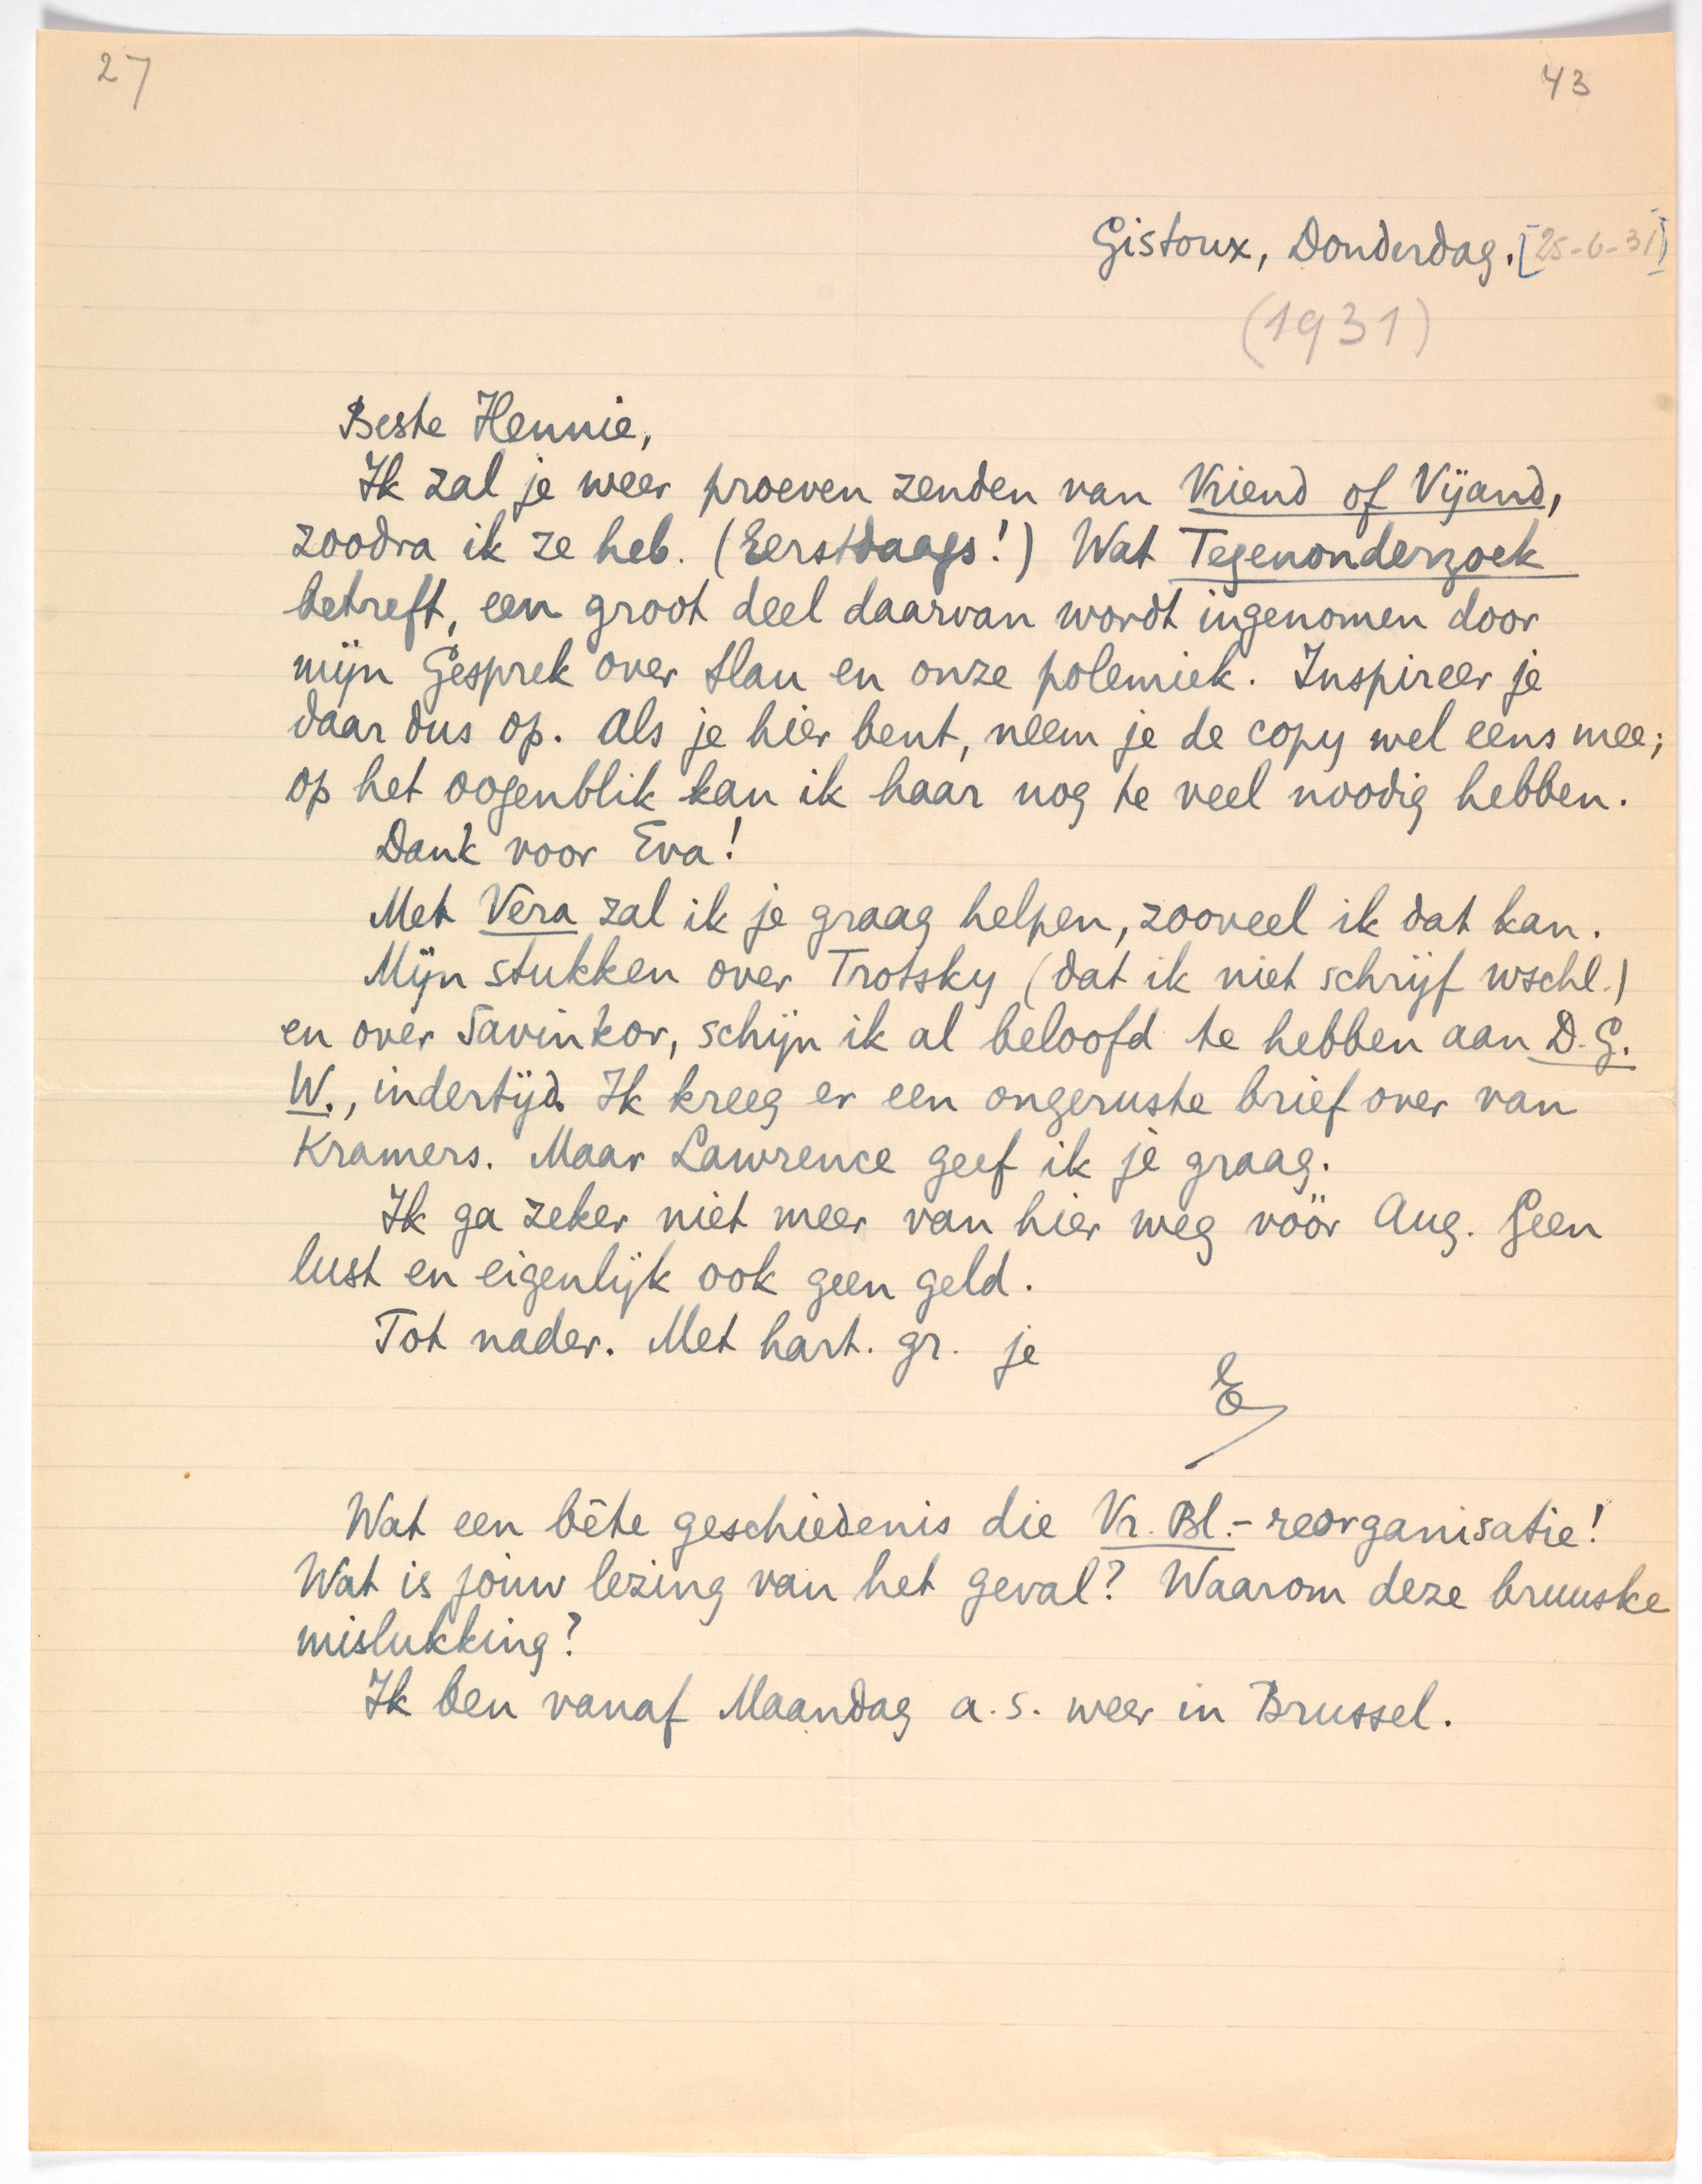 27 43
Gistoux, Donderdag. [25-6-31]
(1931)
Beste Hennie,
Ik zal je weer proeven zenden van Vriend of Vijand,
zoodra ik ze heb. (Eerstdaags!) Wat Tegenonderzoek
betreft, een groot deel daarvan wordt ingenomen door
mijn Gesprek over Slau en onze polemiek. Inspireer je
daar dus op. Als je hier bent, neem je de copy wel eens mee;
op het oogenblik kan ik haar nog te veel noodig hebben.
Dank voor Eva!
Met Vera zal ik je graag helpen, zooveel ik dat kan.
Mijn stukken over Trotsky (dat ik niet schrijf wschl.)
en over Savinkov, schijn ik al beloofd te hebben aan D.G.
W., indertijd. Ik kreeg er een ongeruste brief over van
Kramers. Maar Lawrence geef ik je graag.
Ik ga zeker niet meer van hier weg vóór Aug. Geen
lust en eigenlijk ook geen geld.
Tot nader. Met hart. gr. je
E
Wat een bête geschiedenis die Vr. Bl.-reorganisatie!
Wat is jouw lezing van het geval? Waarom deze bruuske
mislukking?
Ik ben vanaf Maandag a.s. weer in Brussel.